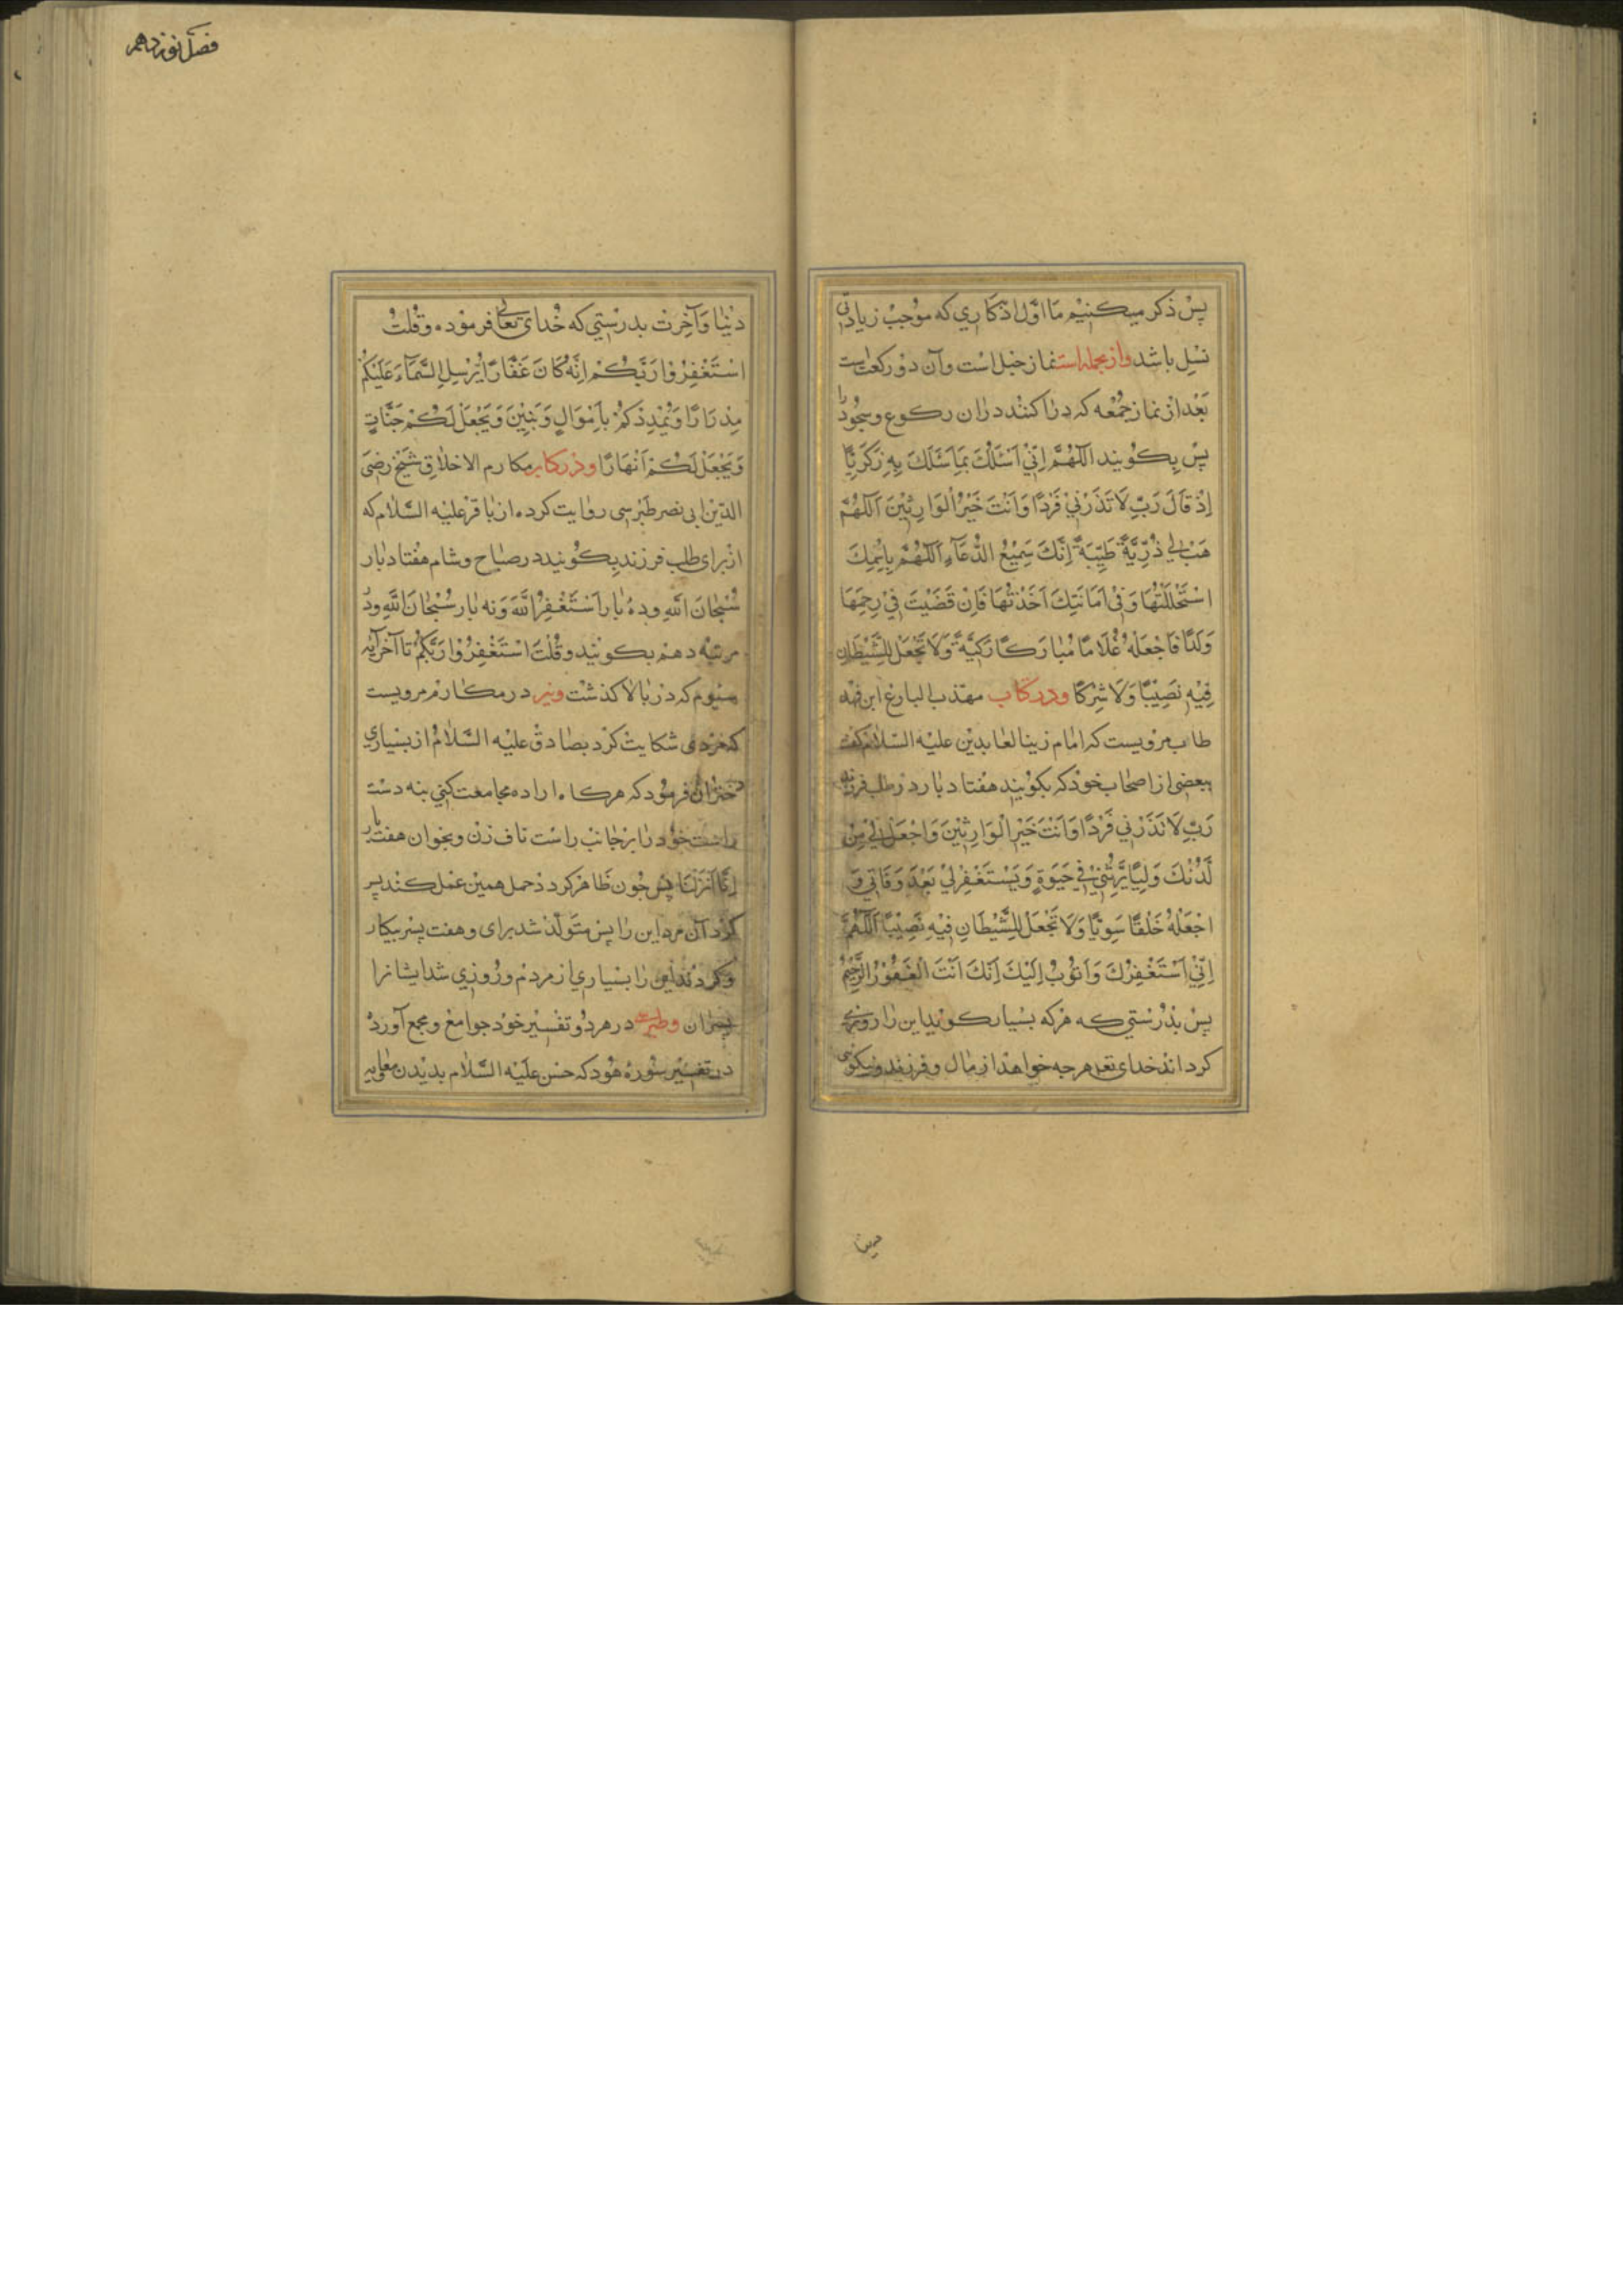 پس ذکر میکنیم ما اوّل اذکاری که موجب زیادتی
نسل باشد و از نجمله است نماز حبل است و آن دو رکعت است
بعد از نماز جمعه که دراز کنند دران رکوع و سجود را
پس بکویند اَللّٰهُمَّ اِنّي اَسْئَلُكَ بِمَا سَئَلَكَ بِهِ زَكَرِيَّا
اِذْ قَالَ رَبِّ لَا تَذَرْنِي فَرْدًا وَاَنْتَ خَيْرُ الْوَارِثِينَ اَللّٰهُمَّ
هَبْ لِي ذُرِّيَّةً طَيِّبَةً اِنَّكَ سَمِيعُ الدُّعَآءِ اَللّٰهُمَّ بِاِسْمِكَ
اسْتَحْلَلْتُهَا وَفِي اَمَانَتِكَ اَخَذْتُهَا فَاِنْ قَضَيْتَ فِي رَحِمِهَا
وَلَدًا فَاجْعَلْهُ غُلَامًا مُبَارَكًا زَكِيَّةً وَلَا تَجْعَلْ لِلشَّيْطَانِ
فِيهِ نَصِيبًا وَلَا شِرْكًا و در کتاب مهذب البارع ابن فهد
طاب مرویست که امام زین العابدین علیه السلام گفت
ببعضی از اصحاب خود که بکویند هفتاد بار در طلب فرزند
رَبِّ لَا تَذَرْنِي فَرْدًا وَاَنْتَ خَيْرُ الْوَارِثِينَ وَاجْعَلْ لِي مِنْ
لَدُنْكَ وَلِيًّا يَرِثُنِي فِي حَيٰوةٍ وَيَسْتَغْفِرْلِي بَعْدَ وَفَاتِي وَ
اجْعَلْهُ خَلْقًا سَوِيًّا وَلَا تَجْعَلْ لِلشَّيْطَانِ فِيهِ نَصِيبًا اَللّٰهُمَّ
اِنّي اَسْتَغْفِرُكَ وَاَتُوبُ اِلَيْكَ اِنَّكَ اَنْتَ الْغَفُورُ الرَّحِيمُ
پس بدرستی که هرکه بسیار کوید این را روزی
کرداند خدای تعه هرچه خواهد از مال و فرزند و نیکوئی
فصل نوزدهم
دنیا و آخرت بدرستی که خدای تعالی فرموده و قلت
اسْتَغْفِرُوا رَبَّكُمْ اِنَّهُ كَانَ غَفَّارًا يُرْسِلِ السَّمَآءَ عَلَيْكُمْ
مِدْرَارًا وَيُمْدِدْكُمْ بِاَمْوَالٍ وَبَنِينَ وَيَجْعَلْ لَكُمْ جَنَّاتٍ
وَيَجْعَلْ لَكُمْ اَنْهَارًا و در کتاب مکارم الاخلاق شیخ رضی
الدین ابی نصر طبرسی روایت کرده از باقر علیه السلام که
از برای طلب فرزند بکویند در صباح و شام هفتاد بار
سُبْحَانَ اللّٰهِ و ده بار اَسْتَغْفِرُ اللّٰهَ و نه بار سُبْحَانَ اللّٰهِ و در
مرتبه دهم بکویند و قُلْتُ اسْتَغْفِرُوا رَبَّكُمْ تا آخر آیه
سیوم که در بالا کذشت و نیز در مکارم مرویست
که مردی شکایت کرد بصادق علیه السلام از بسیاری
دختران فرمود که هرکاه اراده مجامعت کنی بنه دست
راست خود را بر جانب راست ناف زن و بخوان هفت بار
اِنَّا اَنْزَلْنَا پس چون ظاهر کردد حمل همین عمل کند پس
کرد آن مرد این را پس متولد شد برای و هفت پسر بیکار
و کردند این را بسیاری از مردم و روزی شد ایشانرا
پسران و طبرسی در هر دو تفسیر خود جوامع و مجمع آورده
در تفسیر سوره هود که حسن علیه السلام بدیدن معاویه